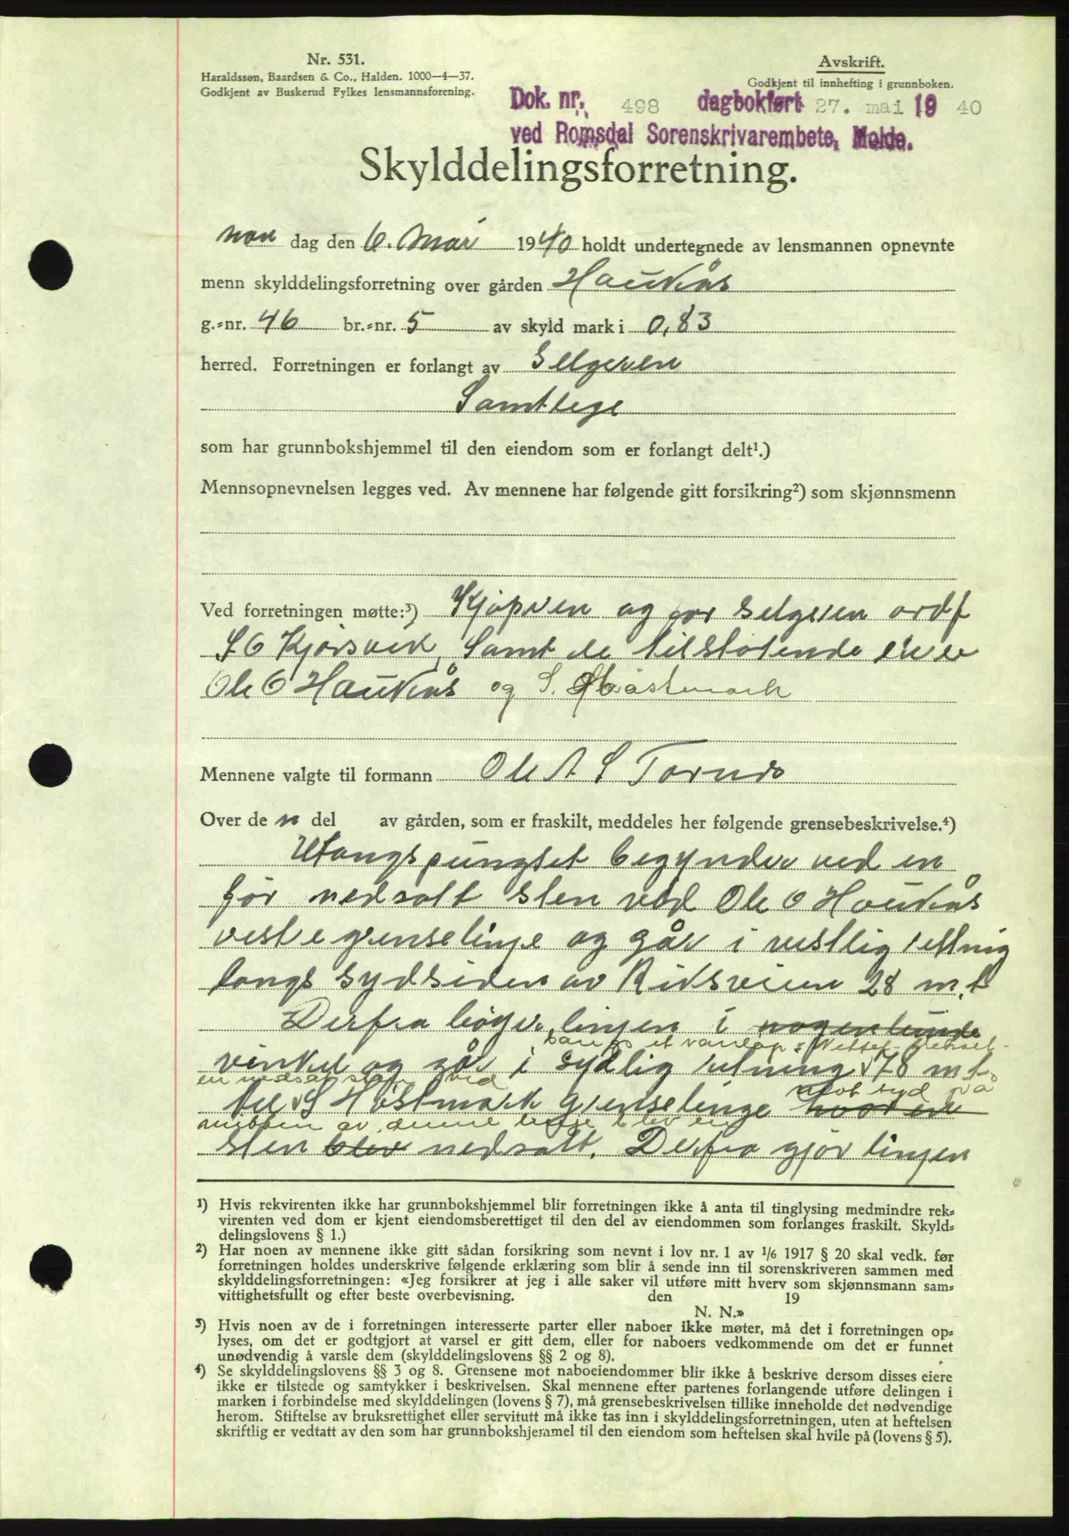 Nr. 531.
Haraldssøn, Baardsen & Co., Halden. 1000—4—37.
Godkjent av Buskerud Fylkes lensmannsforening.
Avskrift.
Godkjent til innhefting i grunnboken.
Dok. nr. 498 dagbokført 27. mai 19 40
ved Romsdal Sorenskrivarembete, Molde.
Skylddelingsforretning.
man dag den 6. Mai 1940 holdt undertegnede av lensmannen opnevnte
menn skylddelingsforretning over gården Haukås
g.-nr. 46 br.-nr. 5 av skyld mark i 0,83
herred. Forretningen er forlangt av Selgeren
Samtlige
som har grunnbokshjemmel til den eiendom som er forlangt delt¹.)
Mennsopnevnelsen legges ved. Av mennene har følgende gitt forsikring²) som skjønnsmenn
Ved forretningen møtte:³) Kjøpren og for selgeren ordf
S O Kjørsvik, Samt de tilstøtende eiere
Ole O Haukås og S. Hostmark
Mennene valgte til formann Ole A S Tornes
Over de n del av gården, som er fraskilt, meddeles her følgende grensebeskrivelse.⁴)
Utangspungtet begynder ved en
før nedsatt sten ved Ole O Haukås
veste grenselinje og går i vestlig retning
langs sydsiden av Riksveien 28 m.t
Derfra bøger linjen i nogenlunde
langs et vanløp
vinkel og går i sydlig retning 78 m t.
en nedsat sten ved mot syd på
til S Hostmark grenselinge hvor en
midten av denne linje blev en
sten blev nedsatt. Derfra gjør linjen
¹) Hvis rekvirenten ikke har grunnbokshjemmel blir forretningen ikke å anta til tinglysing medmindre rek-
virenten ved dom er kjent eiendomsberettiget til den del av eiendommen som forlanges fraskilt. Skyld-
delingslovens § 1.)
²) Har noen av mennene ikke gitt sådan forsikring som nevnt i lov nr. 1 av 1/6 1917 § 20 skal vedk. før
forretningen holdes underskrive følgende erklæring som blir å sende inn til sorenskriveren sammen med
skylddelingsforretningen: «Jeg forsikrer at jeg i alle saker vil utføre mitt hverv som skjønnsmann sam-
vittighetsfullt og efter beste overbevisning. den 19
N. N.»
³) Hvis noen av de i forretningen interesserte parter eller naboer ikke møter, må det i forretningen op-
lyses, om det er godtgjort at varsel er gitt dem, eller for naboers vedkommende om det er funnet
unødvendig å varsle dem (skylddelingslovens §§ 2 og 8).
⁴) Se skylddelingslovens §§ 3 og 8. Grensene mot naboeiendommer blir ikke å beskrive dersom disses eiere
ikke er tilstede og samtykker i beskrivelsen. Skal mennene efter partenes forlangende utføre delingen i
marken i forbindelse med skylddelingen (lovens § 7), må grensebeskrivelsen tillike inneholde det nødvendige
herom. Stiftelse av bruksrettighet eller servitutt må ikke tas inn i skylddelingsforretningen, uten at heftelsen
skriftlig er vedtatt av den som har grunnbokshjemmel til den eiendom som heftelsen skal hvile på (lovens § 5).